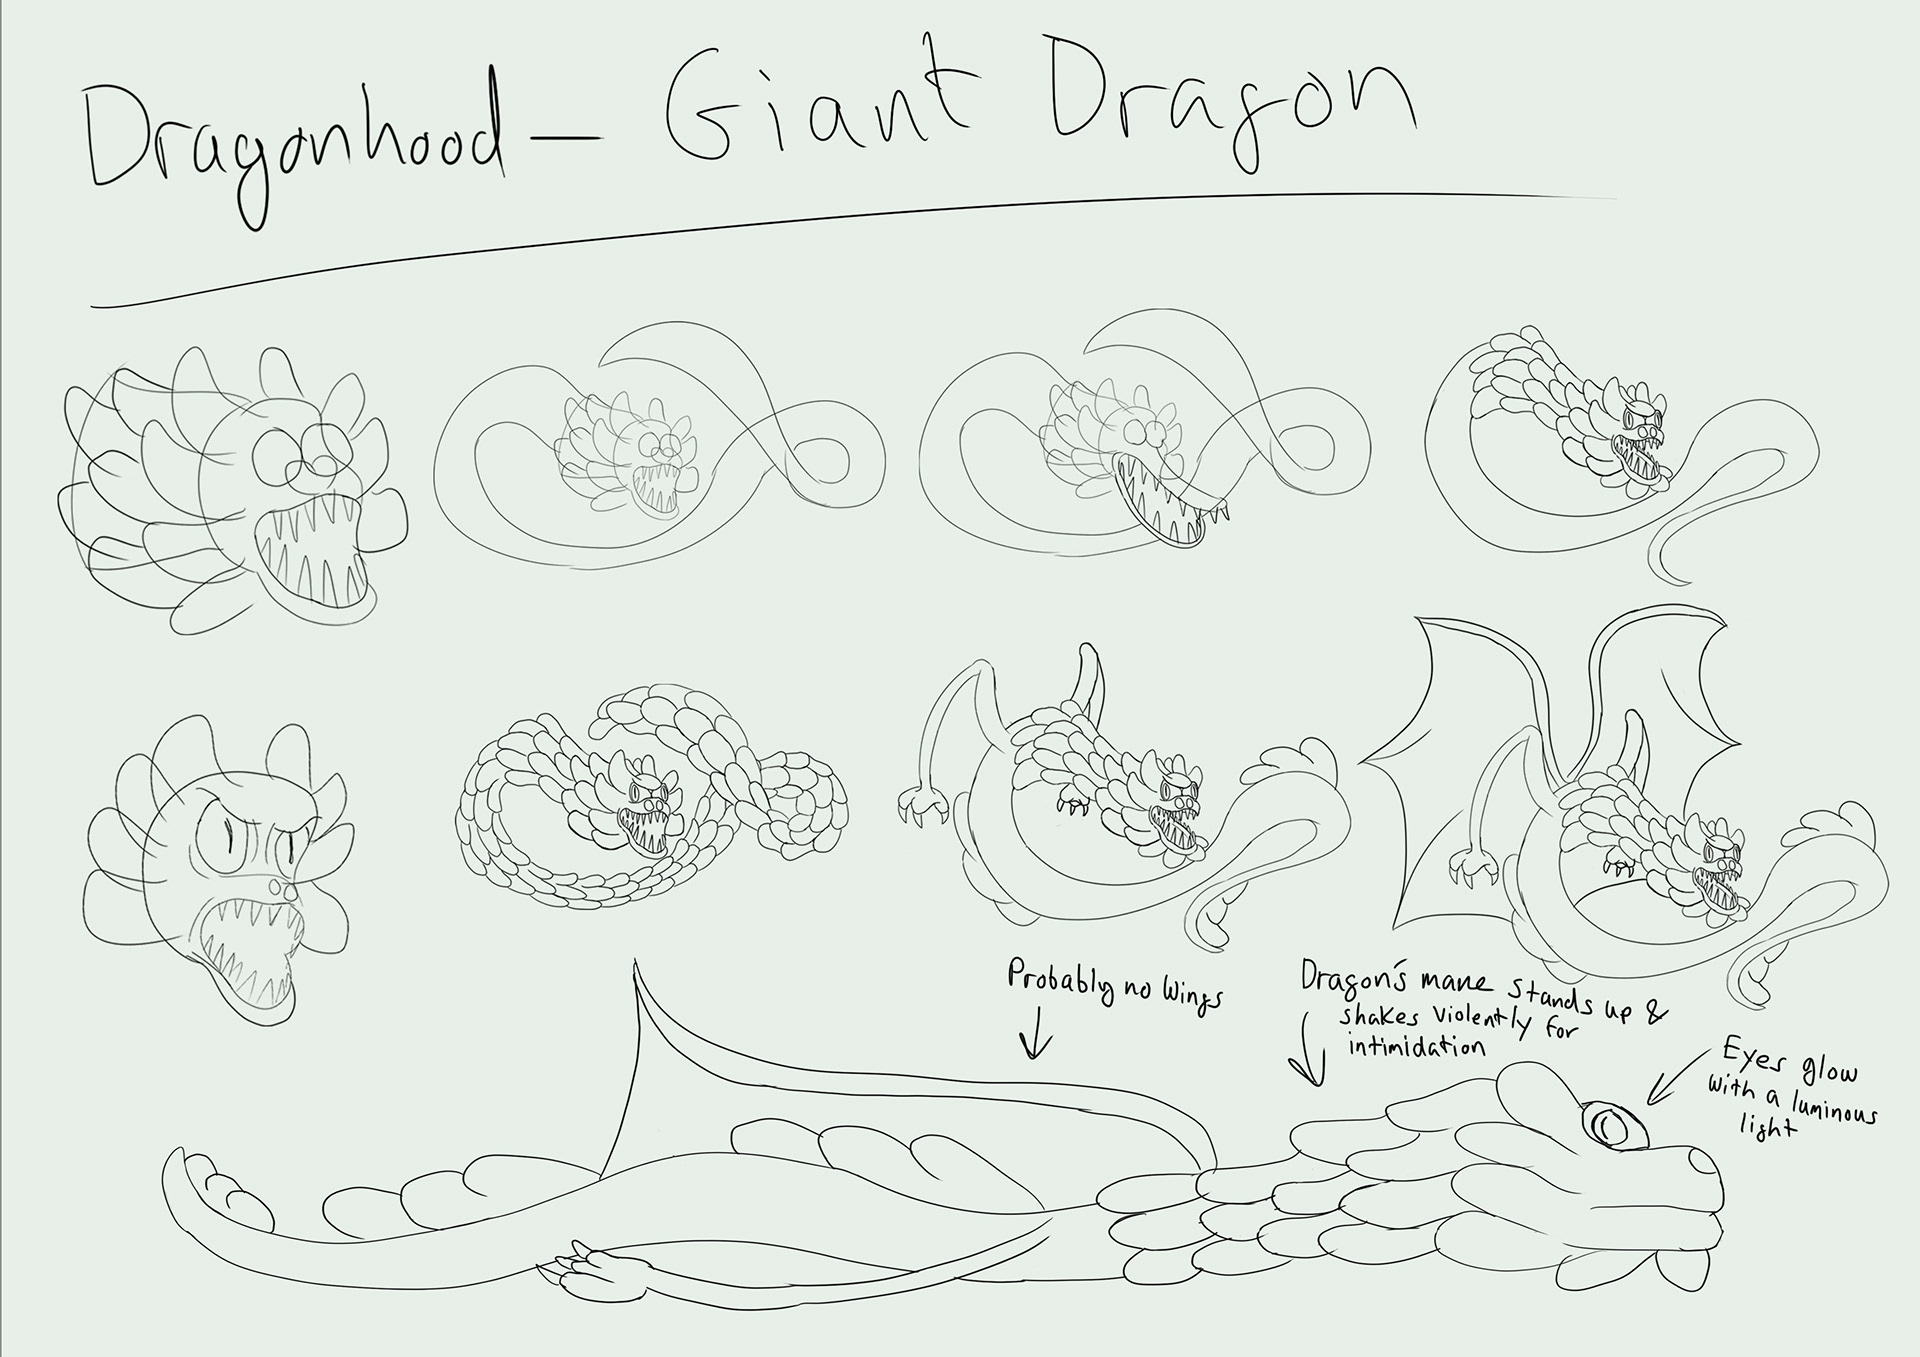 Dragonhood — Giant Dragon
Probably no Wings
Dragon's mane stands up &
shakes violently for
intimidation
Eyes glow
with a luminous
light